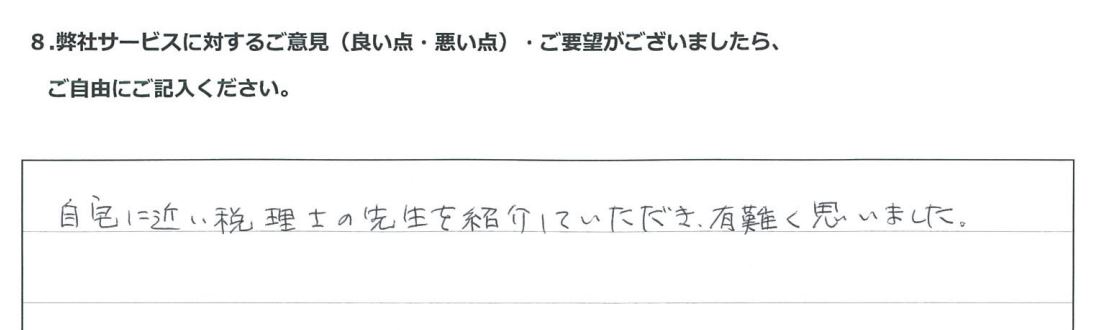 8.弊社サービスに対するご意見（良い点・悪い点）・ご要望がございましたら、
ご自由にご記入ください。
自宅に近い税理士の先生を紹介していただき、有難く思いました。